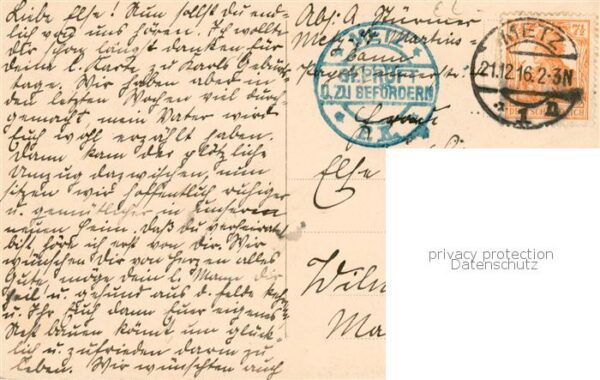 Liebe Else! Nun sollst du end-
lich von uns hören. Ich wollte
dir schon längst danken für
deine l. Karte zu Karls Geburts
tage. Wir haben aber in
den letzten Wochen viel durch-
gemacht, mein Vater wird
Euch wohl erzählt haben.
Dann kam der plötzliche
Umzug dazwischen, nun
sitzen wir hoffentlich ruhiger
u. gemütlicher in unserem
neuen Heim. Daß du verheiratet
bist, hörte ich erst von Dir. Wir
wünschen Dir von Herzen alles
Gute, möge dein l. Mann dir
heil u. gesund aus d. Felde
u. Ihr Euch dann Euer eigenes
Nest bauen könnt, um glück-
lich u. zufrieden darin zu
leben. Wir wünschten auch
Abs: A. Stürmer
Metz Martins-
bann
METZ
GEPRÜFT
U. ZU BEFÖRDERN
METZ
21.12.16.2-3N
* 1 n
7½
Frau
Else
Wil
Ma
privacy protection
Datenschutz